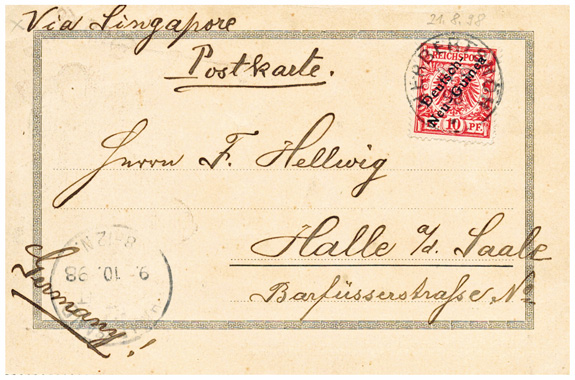 Via Singapore
21.8.98
Postkarte.
REICHSPOST
Deutsch-
Neu-Guinea
10 PF
Herrn F. Hellwig
Halle a/d. Saale
Barfüsserstraße No
Germany!
8-12 N.
9. 10. 98